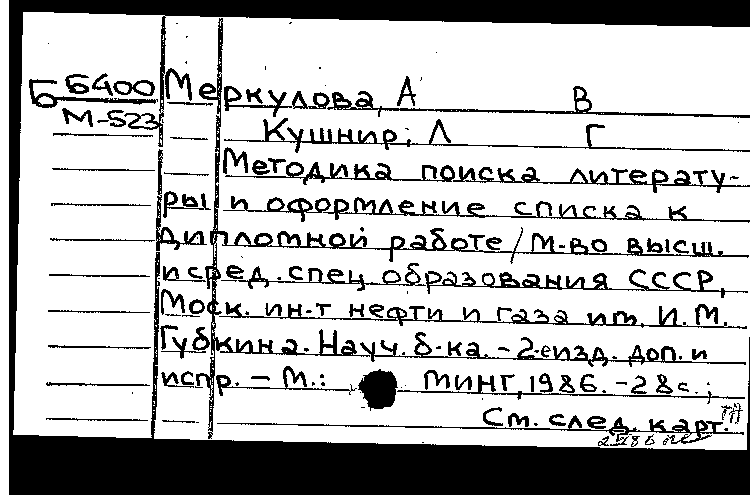 Б 6400 Меркулова, А В
М-523
Кушнир, Л Г
Методика поиска литерату-
ры и оформление списка к
дипломной работе / М-во высш.
и сред. спец образования СССР,
Моск. ин-т нефти и газа им. И.М.
Губкина. Науч. б-ка. - 2-е изд. доп. и
испр. - М.: МИНГ, 1986. - 28 с.;
См. след. карт.